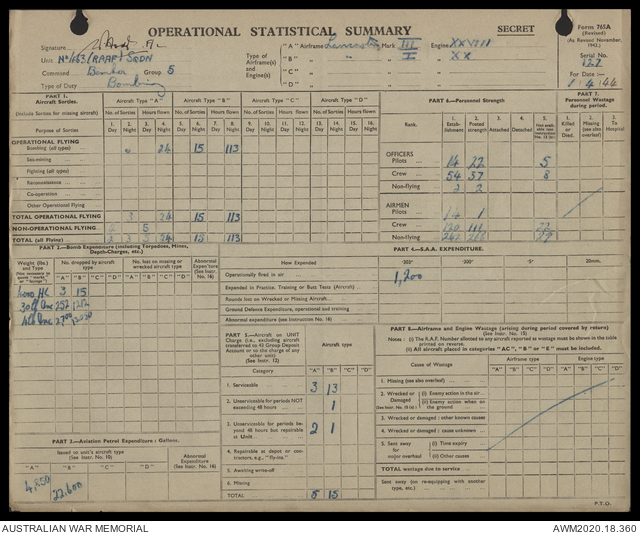 OPERATIONAL STATISTICAL SUMMARY
SECRET
Form 765A
(Revised)
(As Revised November, 1942.)
Signature
Unit No. 463 (RAAF) SQDN
Command Bomber Group 5
Type of Duty Bombing
Type of Airframe(s) and Engine(s)
"A" Airframe Lancaster Mark III Engine XXVIII
"B" " " I " XX
"C" " " "
"D" " " "
Serial No. 122
For Day:—
1.4.44
PART 1.
Aircraft Sorties.
(Include Sorties for missing aircraft)
Aircraft Type "A" Aircraft Type "B" Aircraft Type "C" Aircraft Type "D"
No. of Sorties Hours flown No. of Sorties Hours flown No. of Sorties Hours flown No. of Sorties Hours flown
1. 2. 3. 4. 5. 6. 7. 8. 9. 10. 11. 12. 13. 14. 15. 16.
Purpose of Sorties Day Night Day Night Day Night Day Night Day Night Day Night Day Night Day Night
OPERATIONAL FLYING
Bombing (all types) 24 15 113
Sea-mining
Fighting (all types)
Reconnaissance
Co-operation
Other Operational Flying
TOTAL OPERATIONAL FLYING 3 24 15 113
NON-OPERATIONAL FLYING 5
TOTAL (all Flying) 3 24 15 113
PART 6.—Personnel Strength
PART 7.
Personnel Wastage during period.
Rank.
1. Establishment
2. Posted strength
3. Attached
4. Detached
5.
1. Killed or Died.
2. Missing (see also overleaf)
3. To Hospital
OFFICERS
Pilots 14 22 5
Crew 54 37 8
Non-flying 2 2
AIRMEN
Pilots 14 1
Crew 111 22
Non-flying
PART 2.—Bomb Expenditure (including Torpedoes, Mines, Depth-Charges, etc.)
Weight (lbs.) and Type
No. dropped by aircraft type
No. lost on missing or wrecked aircraft type
Abnormal Expen'ture (See Instr. No. 16)
"A" "B" "C" "D" "A" "B" "C" "D"
4000 HC 3 15
30lb Inc 252
4lb Inc
PART 4.—S.A.A. EXPENDITURE.
How Expended ·303" ·300" ·5" 20mm.
Operationally fired in air 1,200
Expended in Practice, Training or Butt Tests (Aircraft)
Rounds lost on Wrecked or Missing Aircraft
Ground Defence Expenditure, operational and training
Abnormal expenditure (see Instruction No. 16)
PART 3.—Aviation Petrol Expenditure: Gallons.
Issued to unit's aircraft type
(See Instr. No. 10)
Abnormal Expen'ture
(See Instr. No. 16)
"A" "B" "C" "D"
4,850 22,600
PART 5.—Aircraft on UNIT Charge (i.e., excluding aircraft transferred to 43 Group Deposit Account or to the charge of any other unit)
(See Instr. 12)
Aircraft type
Category "A" "B" "C" "D"
1. Serviceable 3 13
2. Unserviceable for periods NOT exceeding 48 hours 1
3. Unserviceable for periods beyond 48 hours but repairable at Unit. 2 1
4. Repairable at depot or contractors, e.g., "fly-ins."
5. Awaiting write-off
6. Missing
TOTAL 5 15
PART 8.—Airframe and Engine Wastage (arising during period covered by return)
(See Instr. No. 15)
Notes: (i) The R.A.F. Number allotted to any aircraft reported as wastage must be shown in the table printed on reverse.
(ii) All aircraft placed in categories "AC", "B" or "E" must be included.
Cause of Wastage
Airframe type Engine type
"A" "B" "C" "D" "A" "B" "C" "D"
1. Missing (see also overleaf)
2. Wrecked or Damaged (See Instr. No. 15 (c))
(i) Enemy action in the air
(ii) Enemy action when on the ground
3. Wrecked or damaged: other known causes
4. Wrecked or damaged: cause unknown
5. Sent away for major overhaul
(i) Time expiry
(ii) Other causes
TOTAL wastage due to service
Sent away (on re-equipping with another type, etc.)
P.T.O.
AUSTRALIAN WAR MEMORIAL
AWM2020.18.360